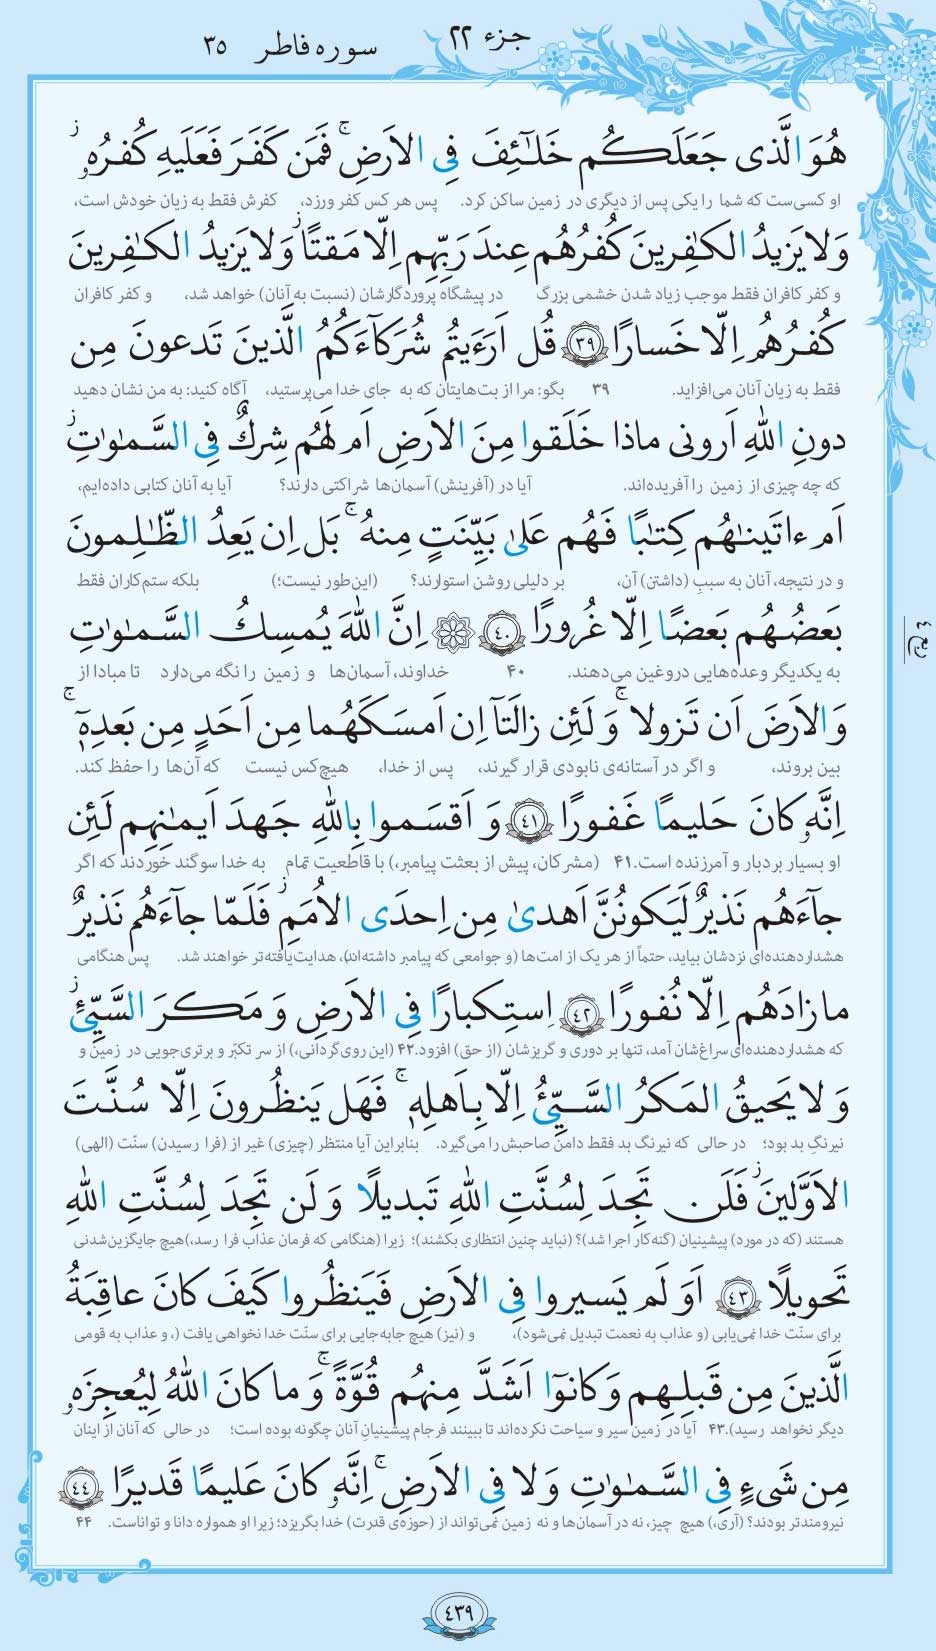 جزء ۲۲
سوره فاطر ۳۵
هُوَ الَّذی جَعَلَکُم خَلـٰٓئِفَ فِی الاَرضِ ۚ فَمَن کَفَرَ فَعَلَیهِ کُفرُهُۥ ۖ
او کسی‌ست که شما را یکی پس از دیگری در زمین ساکن کرد. پس هر کس کفر ورزد، کفرش فقط به زیان خودش است،
وَلا یَزیدُ الکـٰفِرینَ کُفرُهُم عِندَ رَبِّهِم اِلّا مَقتًا ۖ وَلا یَزیدُ الکـٰفِرینَ
و کفر کافران فقط موجب زیاد شدن خشمی بزرگ در پیشگاه پروردگارشان (نسبت به آنان) خواهد شد، و کفر کافران
کُفرُهُم اِلّا خَسارًا ﴿۳۹﴾ قُل اَرَءَیتُم شُرَکآءَکُمُ الَّذینَ تَدعونَ مِن
فقط به زیان آنان می‌افزاید. ۳۹ بگو: مرا از بت‌هایتان که به جای خدا می‌پرستید، آگاه کنید: به من نشان دهید
دونِ اللّٰهِ اَرونی ماذا خَلَقوا مِنَ الاَرضِ اَم لَهُم شِرکٌ فِی السَّمـٰوٰتِ ۖ
که چه چیزی از زمین را آفریده‌اند. آیا در (آفرینش) آسمان‌ها شراکتی دارند؟ آیا به آنان کتابی داده‌ایم،
اَم ءاتَینـٰهُم کِتـٰبًا فَهُم عَلیٰ بَیِّنَتٍ مِنهُ ۚ بَل اِن یَعِدُ الظّـٰلِمونَ
و در نتیجه، آنان به سبب (داشتن) آن، بر دلیلی روشن استوارند؟ (این‌طور نیست؛) بلکه ستم‌کاران فقط
بَعضُهُم بَعضًا اِلّا غُرورًا ﴿۴۰﴾ اِنَّ اللّٰهَ یُمسِکُ السَّمـٰوٰتِ
ربع ٤
به یکدیگر وعده‌هایی دروغین می‌دهند. ۴۰ خداوند، آسمان‌ها و زمین را نگه می‌دارد تا مبادا از
وَالاَرضَ اَن تَزولا ۚ وَلَئِن زالَتآ اِن اَمسَکَهُما مِن اَحَدٍ مِن بَعدِهِۦٓ ۚ
بین بروند، و اگر در آستانه‌ی نابودی قرار گیرند، پس از خدا، هیچ‌کس نیست که آن‌ها را حفظ کند.
اِنَّهُۥ کانَ حَلیمًا غَفورًا ﴿۴۱﴾ وَ اَقسَموا بِاللّٰهِ جَهدَ اَیمـٰنِهِم لَئِن
او بسیار بردبار و آمرزنده است. ۴۱ (مشرکان، پیش از بعثت پیامبر،) با قاطعیت تمام به خدا سوگند خوردند که اگر
جآءَهُم نَذیرٌ لَیَکونُنَّ اَهدیٰ مِن اِحدَی الاُمَمِ ۖ فَلَمّا جآءَهُم نَذیرٌ
هشداردهنده‌ای نزدشان بیاید، حتماً از هر یک از امت‌ها (و جوامعی که پیامبر داشته‌اند)، هدایت‌یافته‌تر خواهند شد. پس هنگامی
ما زادَهُم اِلّا نُفورًا ﴿۴۲﴾ اِستِکبارًا فِی الاَرضِ وَ مَکرَ السَّیِّئِ ۖ
که هشداردهنده‌ای سراغ‌شان آمد، تنها بر دوری و گریزشان (از حق) افزود. ۴۲ (این روی‌گردانی،) از سر تکبّر و برتری‌جویی در زمین و
وَ لا یَحیقُ المَکرُ السَّیِّئُ اِلّا بِاَهلِهِۦ ۚ فَهَل یَنظُرونَ اِلّا سُنَّتَ
نیرنگ بد بود؛ در حالی که نیرنگ بد فقط دامن صاحبش را می‌گیرد. بنابراین آیا منتظر (چیزی) غیر از (فرا رسیدن) سنّت (الهی)
الاَوَّلینَ ۖ فَلَن تَجِدَ لِسُنَّتِ اللّٰهِ تَبدیلًا وَ لَن تَجِدَ لِسُنَّتِ اللّٰهِ
هستند (که در مورد) پیشینیان (گنه‌کار اجرا شد)؟ (نباید چنین انتظاری بکشند)؛ زیرا (هنگامی که فرمان عذاب فرا رسد،) هیچ جایگزین‌شدنی
تَحویلًا ﴿۴۳﴾ اَوَ لَم یَسیروا فِی الاَرضِ فَیَنظُروا کَیفَ کانَ عاقِبَةُ
برای سنّت خدا نمی‌یابی (و عذاب به نعمت تبدیل نمی‌شود)، و (نیز) هیچ جابه‌جایی برای سنّت خدا نخواهی یافت (، و عذاب به قومی
الَّذینَ مِن قَبلِهِم وَ کانوٓا اَشَدَّ مِنهُم قُوَّةً ۚ وَ ما کانَ اللّٰهُ لِیُعجِزَهُۥ
دیگر نخواهد رسید). ۴۳ آیا در زمین سیر و سیاحت نکرده‌اند تا ببینند فرجام پیشینیان آنان چگونه بوده است؛ در حالی که آنان از اینان
مِن شَیءٍ فِی السَّمـٰوٰتِ وَ لا فِی الاَرضِ ۚ اِنَّهُۥ کانَ عَلیمًا قَدیرًا ﴿۴۴﴾
نیرومندتر بودند؟ (آری،) هیچ چیز، نه در آسمان‌ها و نه زمین نمی‌تواند از (حوزه‌ی قدرت) خدا بگریزد؛ زیرا او همواره دانا و تواناست. ۴۴
٤٣٩